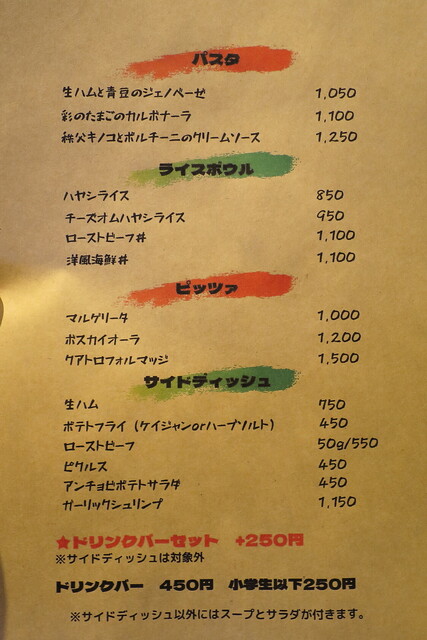 パスタ
生ハムと青豆のジェノベーゼ 1,050
彩のたまごのカルボナーラ 1,100
秩父キノコとポルチーニのクリームソース 1,250
ライスボウル
ハヤシライス 850
チーズオムハヤシライス 950
ローストビーフ丼 1,100
洋風海鮮丼 1,100
ピッツァ
マルゲリータ 1,000
ボスカイオーラ 1,200
クアトロフォルマッジ 1,500
サイドディッシュ
生ハム 750
ポテトフライ（ケイジャンorハーブソルト） 450
ローストビーフ 50g/550
ピクルス 450
アンチョビポテトサラダ 450
ガーリックシュリンプ 1,150
★ドリンクバーセット +250円
※サイドディッシュは対象外
ドリンクバー 450円 小学生以下250円
※サイドディッシュ以外にはスープとサラダが付きます。